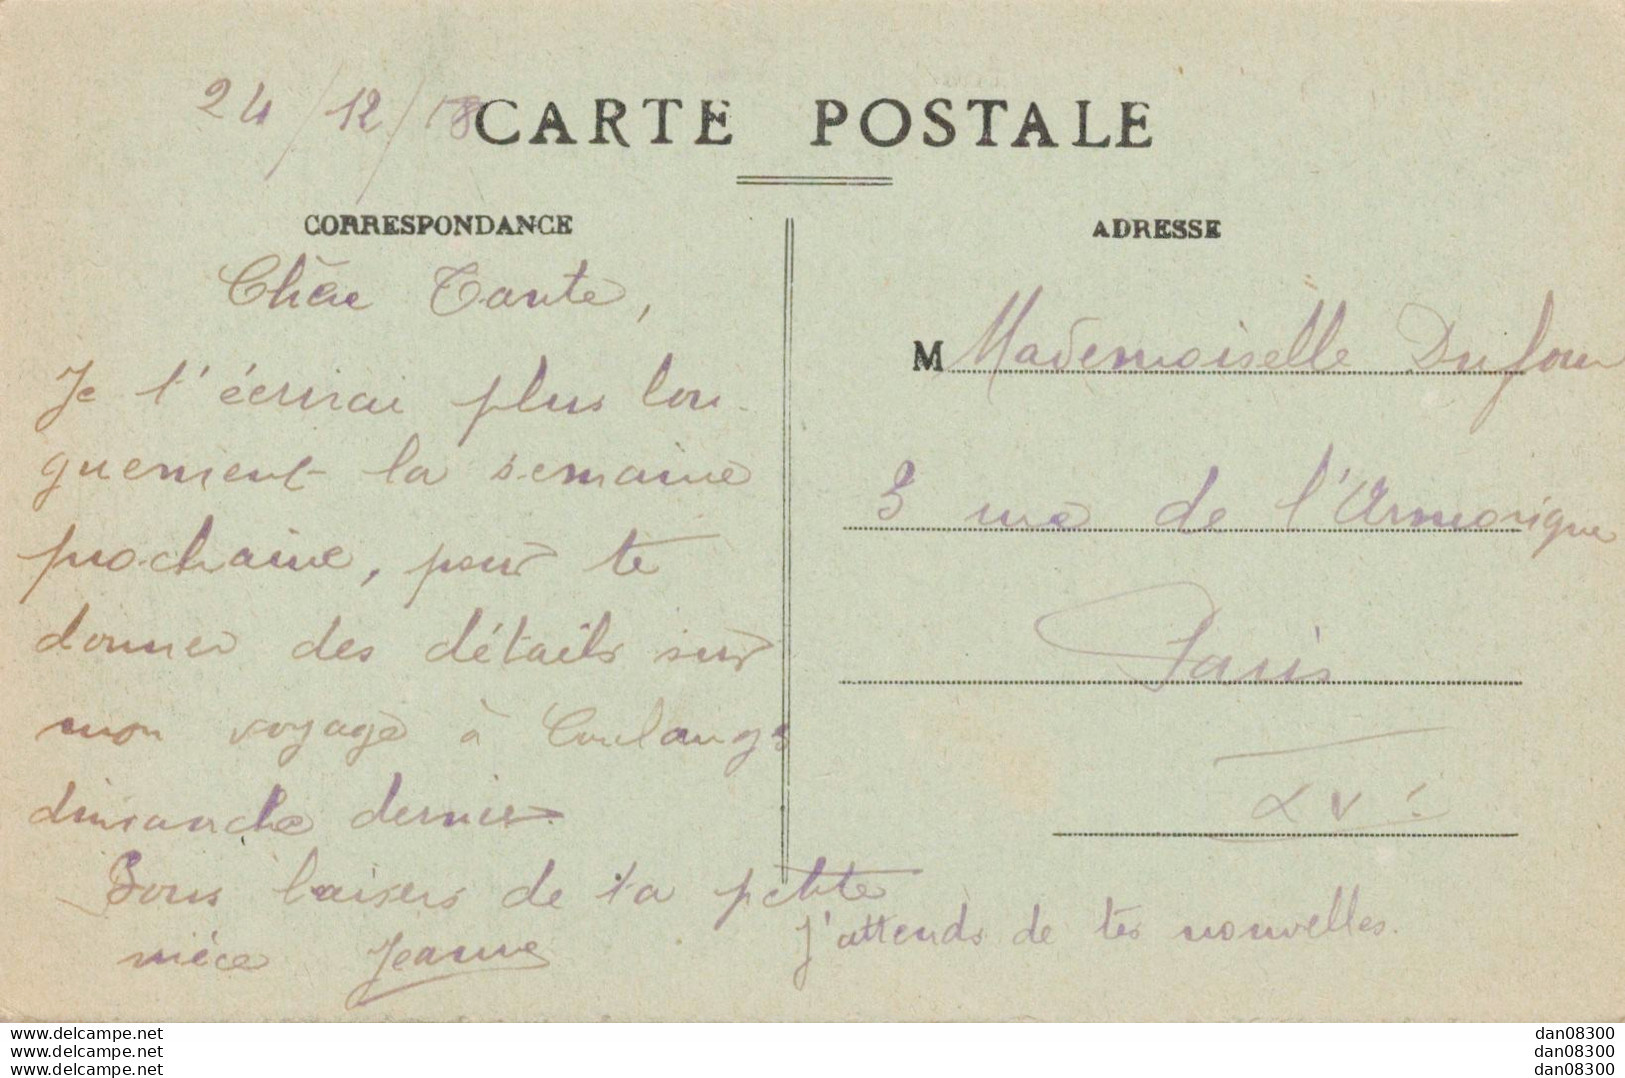 24/12/18
CARTE POSTALE
CORRESPONDANCE
Chère Tante,
Je t'écrirai plus lon-
guement la semaine
prochaine, pour te
donner des détails sur
mon voyage à Coulangs
dimanche dernier.
Bons baisers de ta petite
nièce Jeanne
J'attends de tes nouvelles.
ADRESSE
M Mademoiselle Dufour
3 rue de l'Armorique
Paris
XVe
www.delcampe.net
www.delcampe.net
www.delcampe.net
dan08300
dan08300
dan08300